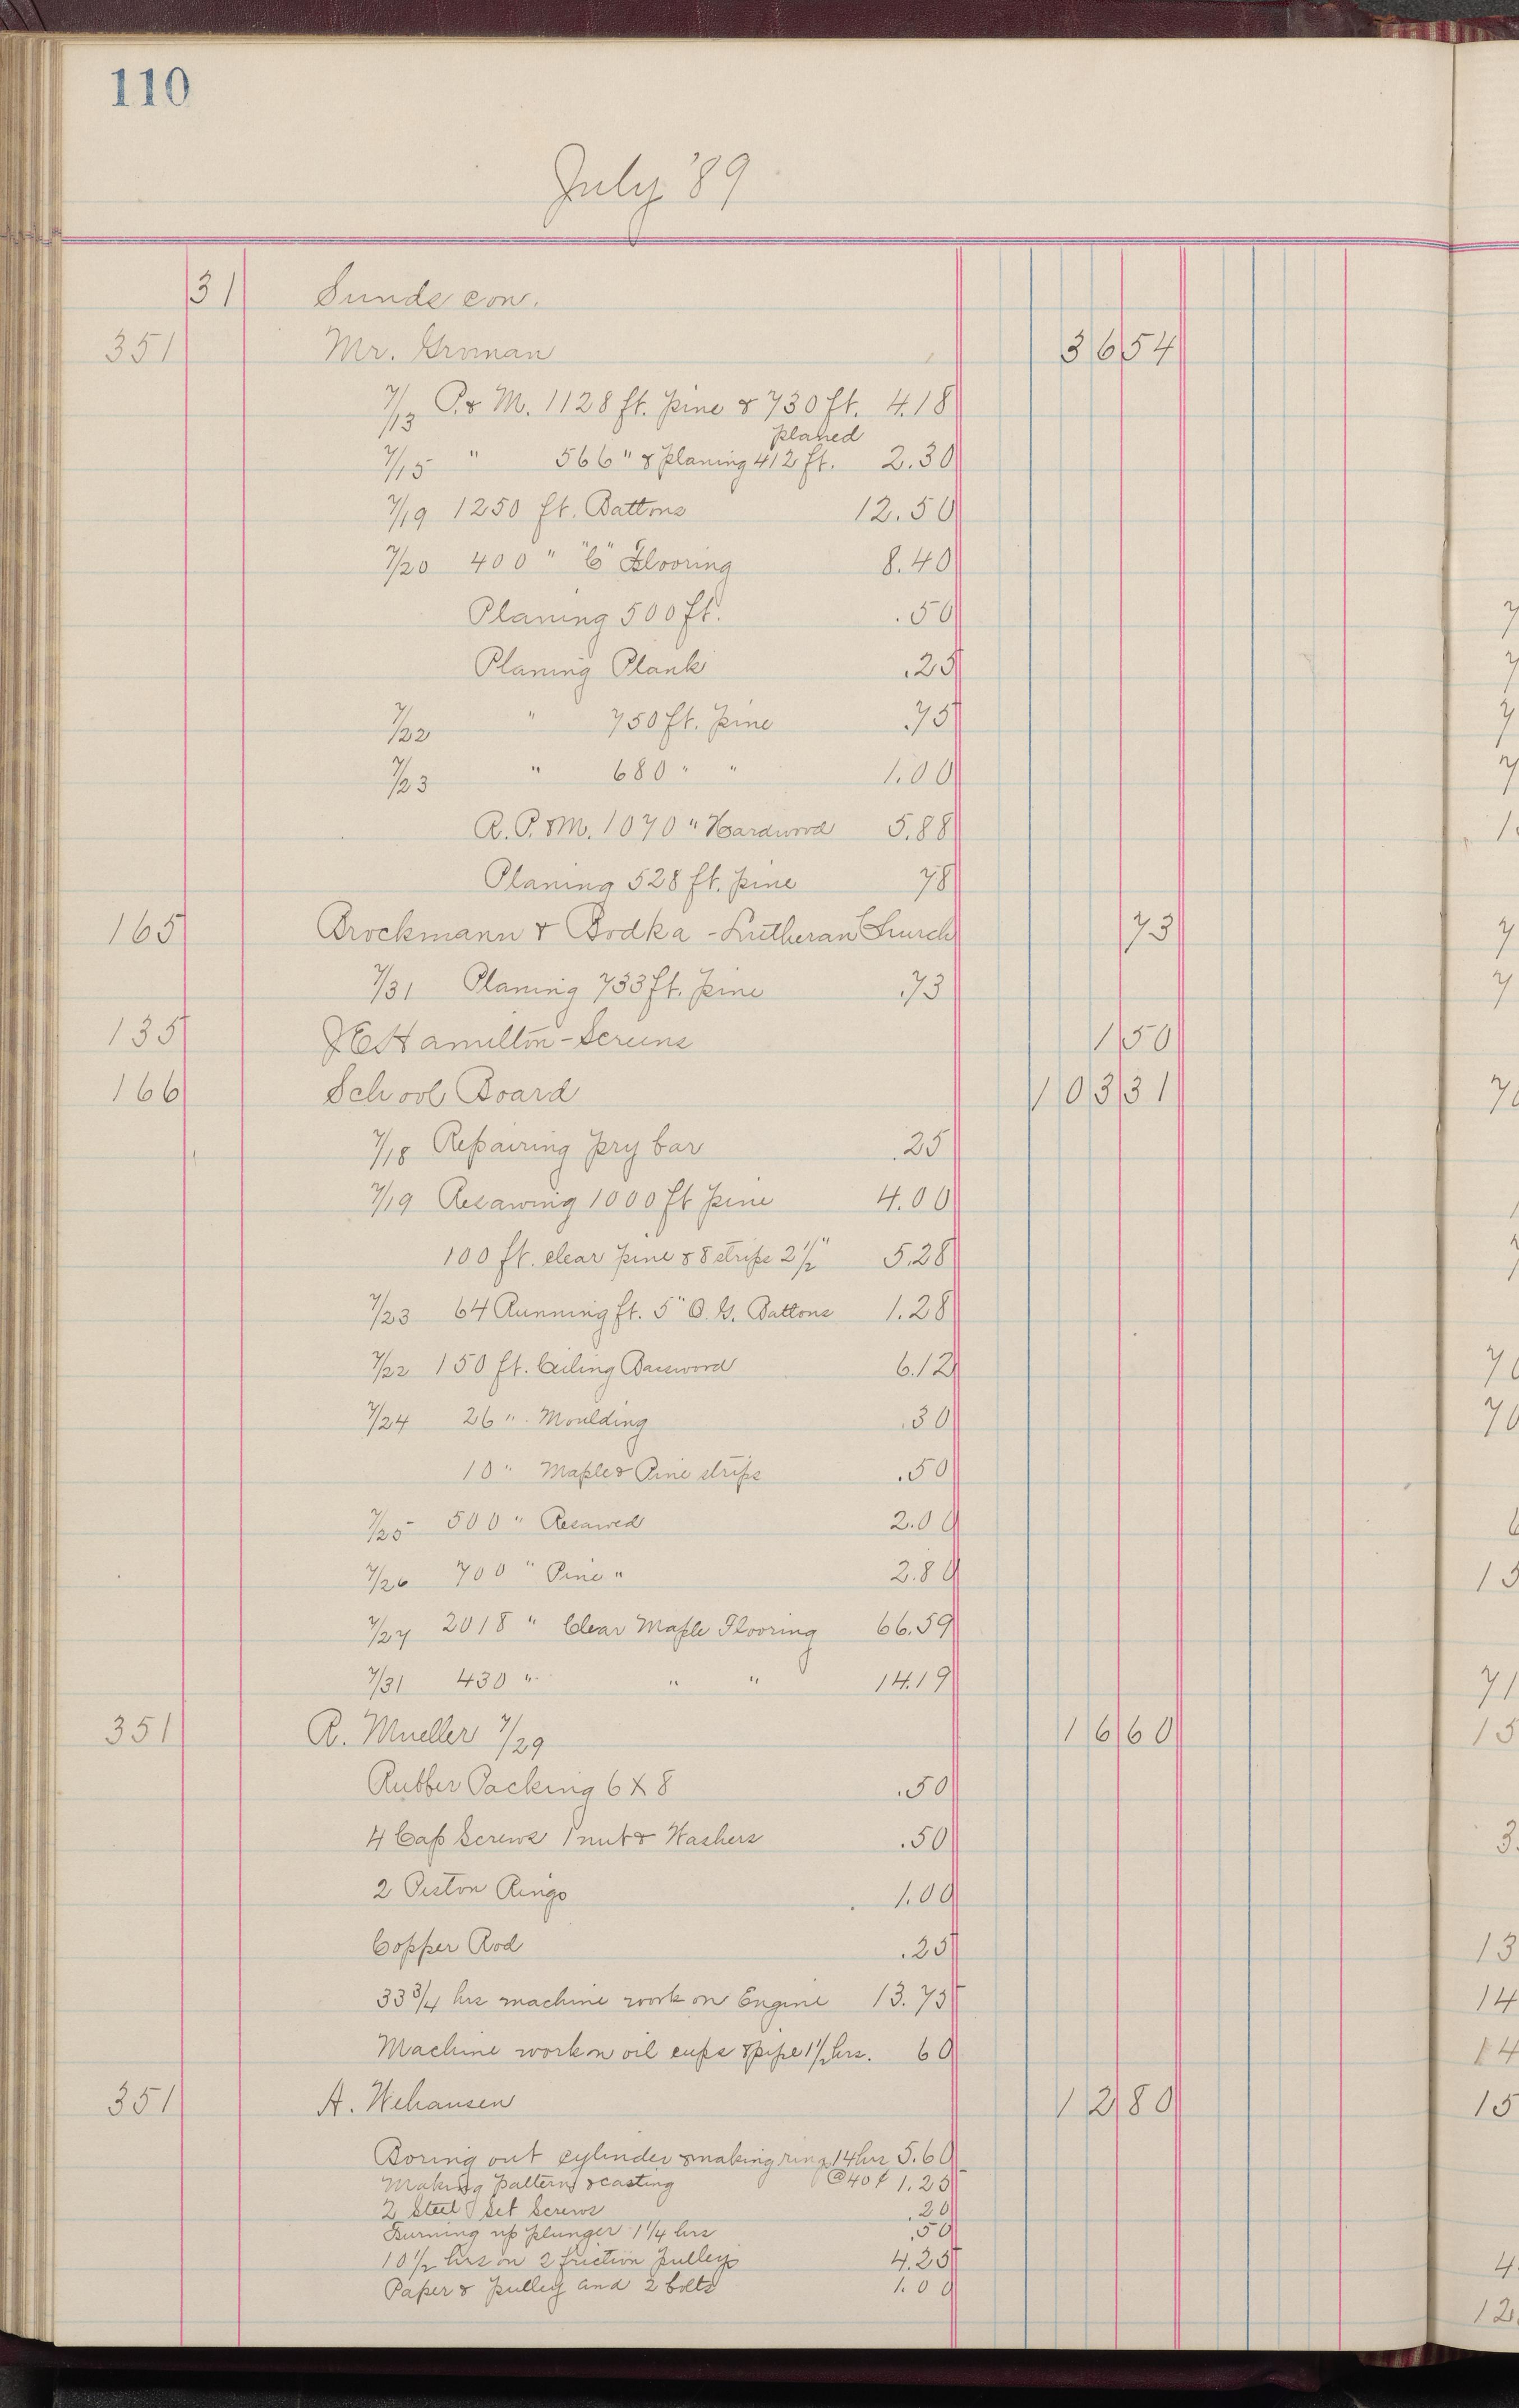 110
July '89
31 Sunds con.
351 Mr. Groman 36 54
7/13 P. & M. 1128 ft. pine & 730 ft. 4.18
planed
7/15 " 566 " & planing 412 ft. 2.30
7/19 1250 ft. Battons 12.50
7/20 400 " "C" Flooring 8.40
Planing 500 ft. .50
Planing Plank .25
7/22 " 750 ft. pine .75
7/23 " 680 " " 1.00
R. P. & M. 1070 " Hardwood 5.88
Planing 528 ft. pine 78
165 Brockmann & Bodka - Lutheran Church 73
7/31 Planing 733 ft. pine .73
135 Hamilton - Screens 1 50
166 School Board 103 31
7/18 Repairing pry bar .25
7/19 Resawing 1000 ft pine 4.00
100 ft. clear pine & 8 strips 2 1/2" 5.28
7/23 64 Running ft. 5" O. G. Battons 1.28
7/22 150 ft. Ceiling Basswood 6.12
7/24 26 " Moulding .30
10 " Maple & Pine strips .50
7/25 500 " Resawed 2.00
7/26 700 " Pine " 2.80
7/27 2018 " Clear Maple Flooring 66.59
7/31 430 " " " 14.19
351 R. Mueller 7/29 16 60
Rubber Packing 6 X 8 .50
4 Cap Screws 1 nut & Washers .50
2 Piston Rings 1.00
Copper Rod .25
33 3/4 hrs machine work on Engine 13.75
Machine work on oil cups & pipe 1 1/2 hrs. 60
351 A. Wehausen 12 80
Boring out cylinder & making ring 14 hrs 5.60
Making pattern & casting @ 40 ¢ 1.25
2 Steel Set Screws .20
Turning up plunger 1 1/4 hrs .50
10 1/2 hrs on 2 friction pulleys 4.25
Paper & pulley and 2 bolts 1.00